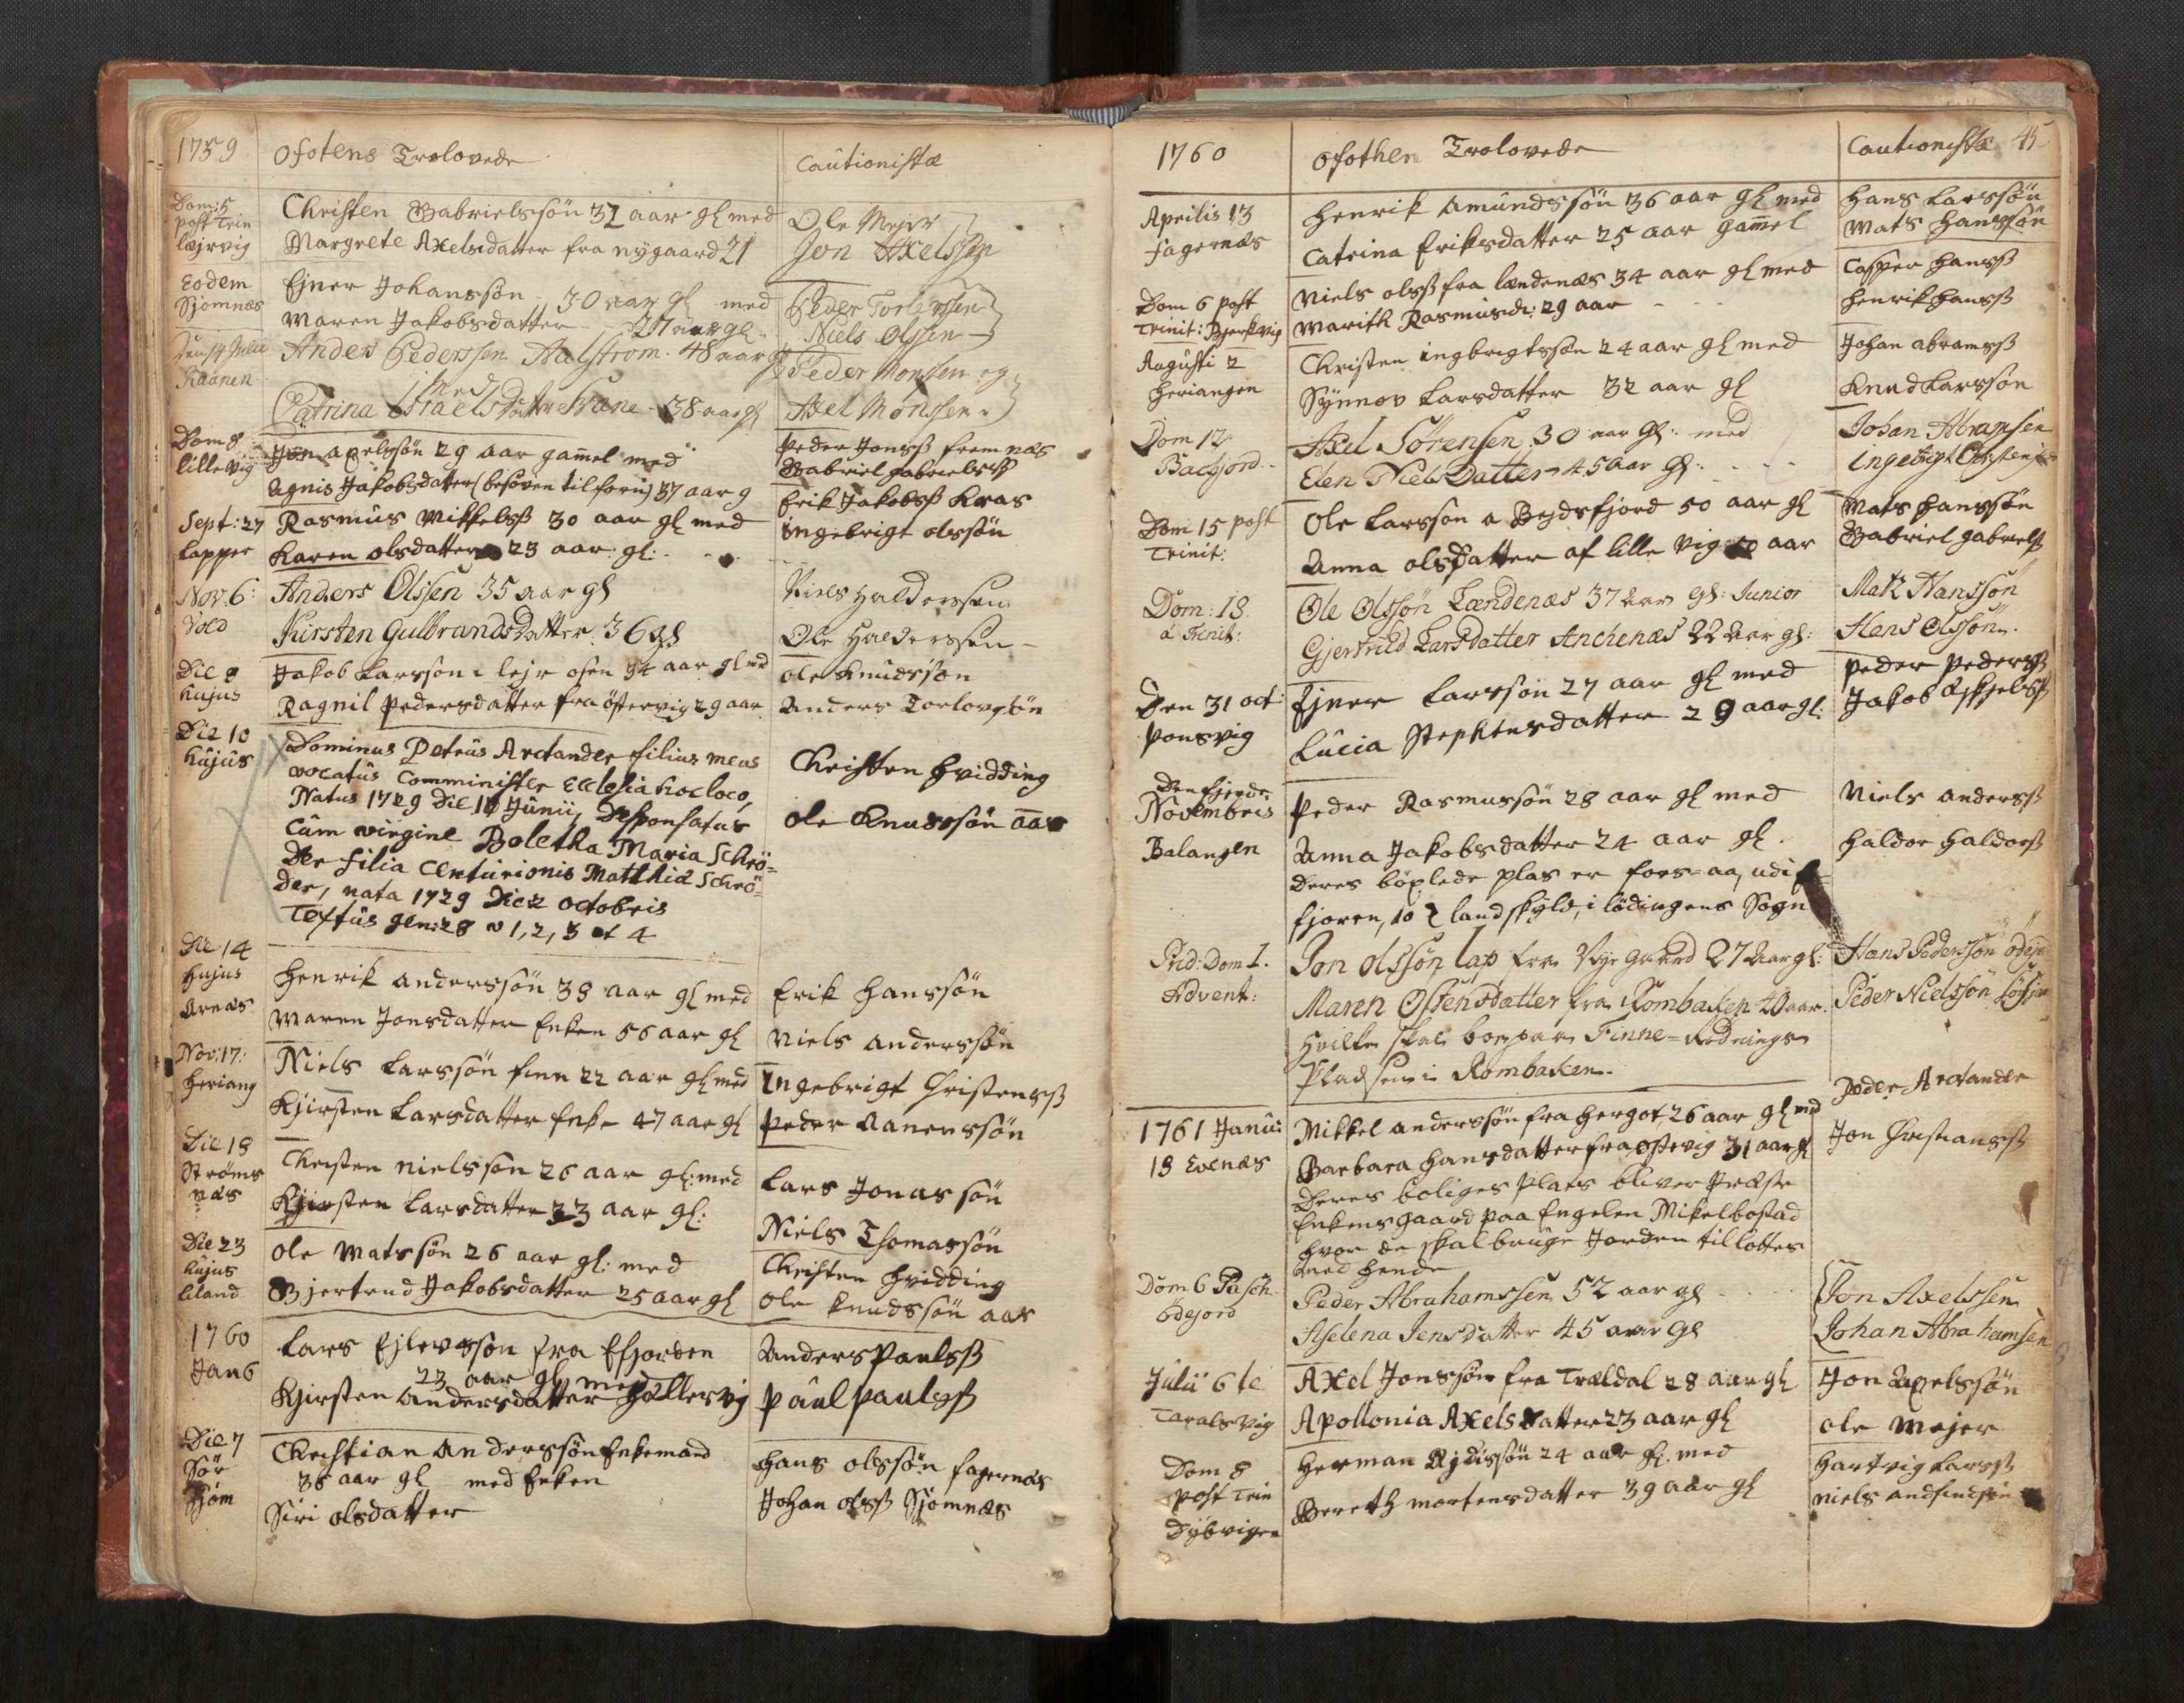 1759
Ofotens Trolovede
Cautionistæ
Dom: 5
post Trin
lejrvig
Christen Gabrielssøn 31 aar gl med
Margrete Axelsdatter fra nygaard 21
Ole Mejer
Jon Axelssen
Eodem
Sjomnæs
Ejner Johanssøn 30 aar gl med
Maren Jakobsdatter 27 aar gl
Peder Torlersen
Niels Olsen
Den 14 Julii
Raanen
Anders Pederssen Aalstrom. 48 aar gl
med
Catrina Israels Datter 38 aar gl
Peder Monsen og
Axel Monssen
Dom 8
lillevig
Jon axelssøn 29 aar gam̄el med
Agnis Jakobsdatter (besøven tilforn) 37 aar g
Peder Jonsß fremnæs
Gabriel gabrielsß
Sept: 27
Lapper
Rasmus Mikkelsß 30 aar gl med
Karen olsdatter 23 aar: gl:
Erik Jakobsß Kraas
ingebrigt olssøn
Nov. 6:
Vold
Anders Olssen 35 aar gl
Kirsten Gulbrandsdatter. 36 gl
Niels Halderssen
Ole Halderssen
Die 8
hujus
Jakob Larssøn i lejrosen 34 aar gl med
Ragnil Pedersdatter fra østervig 29 aar
ole Knudssøn
Anders Torlovsøn
Die 10
hujus
Dominus Petrus Arctander filius meus
vocatus Comminister Ecclesia hoc loco,
Natus 1729 die 10 Junii, Desponsatus
Cum virgine Boletha Maria Schrö-
der filia Centurionis Matthiæ Schrö-
der, nata 1729 Die 2 octobris
Textus Gen: 28 v 1, 2, 3 et 4
Christen Hvidding
ole Knudssøn aar
Die 14
hujus
Arnæs
Henrik anderssøn 38 aar gl med
Maren Jonsdatter Enken 56 aar gl
Erik Hanssøn
Niels Anderssøn
Nov: 17:
Heriang
Niels Larssøn finn 22 aar gl med
Kjirsten Larsdatter Enke 47 aar gl
Ingebrigt Christensß
Peder Aanenssøn
Die 18
Strøms
næs
Christen Nielssøn 26 aar gl: med
Kjirsten Larsdatter 33 aar gl:
Lars Jonassøn
Niels Thomassøn
Die 23
hujus
Liland
Ole Matssøn 26 aar gl: med
Gjertrud Jakobsdatter 25 aar gl
Christen Hvidding
Ole Knudssøn aar
1760
Jan 6
Lars Ejlevssøn fra Efjorden
23 aar gl med
Kjirsten Andersdatter Hallervig
Anders Paulsß
Paul Paulsß
Die 7
Sør
Sjom
Christian Anderssøn Enkemand
36 aar gl med Enken
Siri olsdatter
Hans olssøn fagernæs
Johan olsß Sjomnæs
1760
Ofothen Trolovede
Cautionistæ 45
Aprilis 13
fagernæs
Henrik Amundssøn 36 aar gl med
Catrina Eriksdatter 25 aar gam̄el
Hans Larssøn
Mats Hanssøn
Dom 6 post
Trinit: Bjerkvig
Niels olsß fra lændenæs 34 aar gl med
Marith Rasmusd: 29 aar
Casper Hansß
Henrik Hansß
Augusti 2
Heriangen
Christen ingbrigtssøn 24 aar gl med
Synnov Larsdatter 32 aar gl
Johan abramsß
Knud Larssøn
Dom 12
Bacfjord
Axel Sörensen 30 aar gl: med
Elen Niels Datter 45 aar gl:
Johan Abramsen
Ingebrigt Christens
Dom 15 post
Trinit:
Ole Larssøn a Bejdsfjord 50 aar gl
Anna olsdatter af lille vig aar
Mats Hanssøn
Gabriel gabrielß
Dom: 18.
a Trinit:
Ole Olssön Lændenæs 37 aar gl: Junior
Gjertrud Larsdatter Anchenæs 22 aar gl:
Matz Hanssön
Hans Olssön
Den 31 oct:
Ponsvig
Ejner Larssøn 27 aar gl med
Lucia Stephensdatter 29 aar gl:
Peder Pedersß
Jakob Eskjelsß
Den fjerde
Novembris
Balangen
Peder Rasmussøn 28 aar gl med
Anna Jakobsdatter 24 aar gl.
Deres böxlede plas er fors-aa, udi E-
fjoren, 10 landskyld, i lödingens Sogn
Niels andersß
Haldor Haldorß
Prid: Dom 1.
Advent:
Jon olssøn lap fra Nye Gaard 27 aar gl:
Maren Ostensdatter fra Rombaken 40 aar.
hvilke skal boe paa Finne-Rødnings
Pladsen i Rombaken.
Hans Pederssøn
Peder Nielssøn
1761 Janu:
18 Evenæs
Mikkel anderssøn fra Hergot, 26 aar gl med
Barbara Hansdatter fra ostevig 31 aar gl
Deres boliges plads bliver Præste
Enkens gaard paa Engelen Mikelbostad
hvor de skal bruge Jorden til lottes
med hende
Peder Arctander
Jon Christiansß
Dom 6 Pasch
Ödejord
Peder Abrahamssen 52 aar gl
Aselena Jensdatter 45 aar gl
Jon Axelssen
Johan Abrahamsen
Julii 6te
Taralsvig
Axel Jonssøn fra Trældal 28 aar gl
Apollonia Axelsdatter 23 aar gl
Jon Axelssøn
Ole Mejer
Dom 8
post Trin
Dybvigen
Herman Ejdissøn 24 aar gl. med
Bereth Mortensdatter 39 aar gl
Hartvig Larsß
Niels andfindsøn